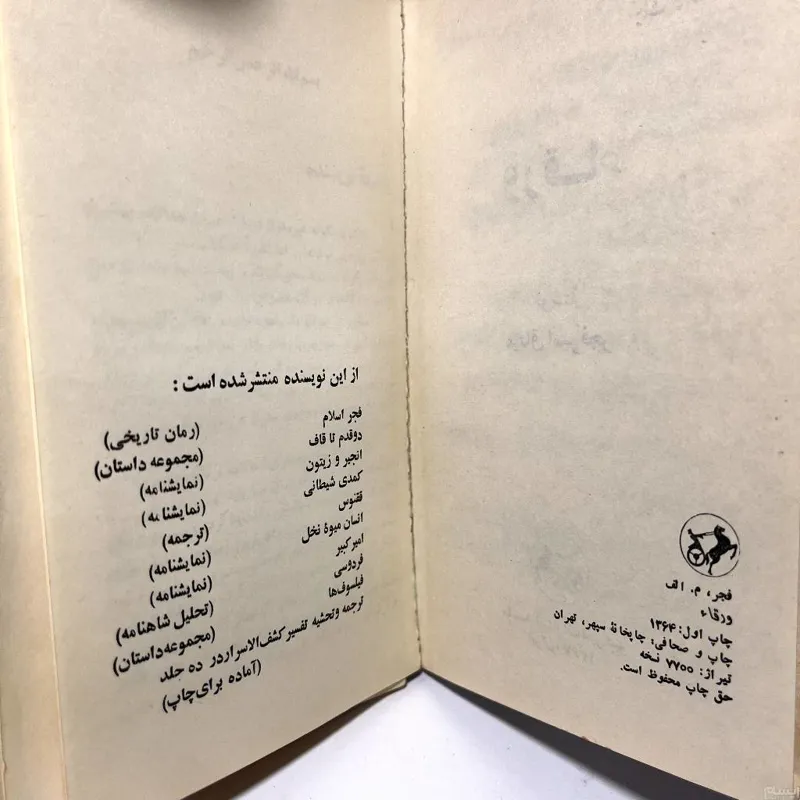 فجر، م. الف
ورقاء
چاپ اول: ۱۳۶۴
چاپ و صحافی: چاپخانهٔ سپهر، تهران
تیراژ: ۷۷۰۰ نسخه
حق چاپ محفوظ است.
از این نویسنده منتشر شده است:
فجر اسلام (رمان تاریخی)
دوقدم تا قاف (مجموعه داستان)
انجیر و زیتون (نمایشنامه)
کمدی شیطانی (نمایشنامه)
ققنوس (ترجمه)
انسان میوهٔ نخل (نمایشنامه)
امیرکبیر (نمایشنامه)
فردوسی (تحلیل شاهنامه)
فیلسوف‌ها (مجموعه‌داستان)
ترجمه وتحشیه تفسیر کشف‌الاسرار در ده جلد
(آماده برای چاپ)